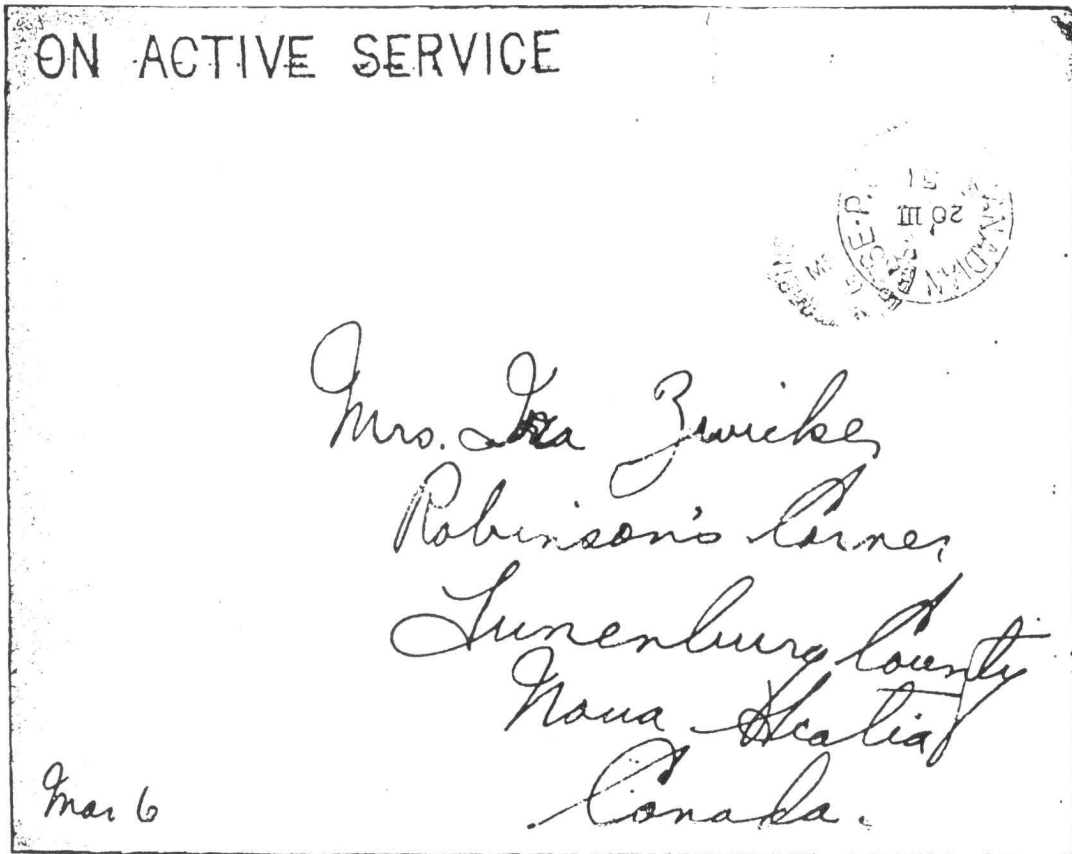 ON ACTIVE SERVICE
20 III
51
CANADIAN
Mrs. Ira Zwicker
Robinson's Corner
Lunenburg County
Nova Scotia
Canada.
Mar 6